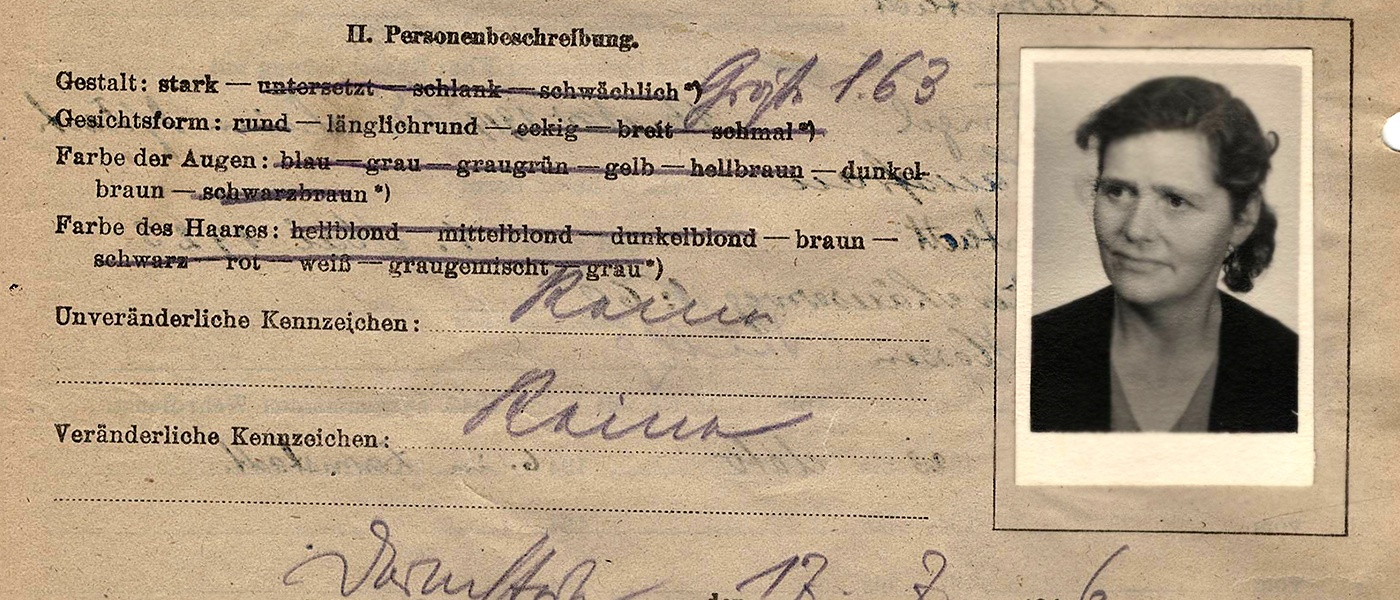 II. Personenbeschreibung.
Gestalt: stark — untersetzt — schlank — schwächlich *) Größe 1.63
Gesichtsform: rund — länglichrund — eckig — breit — schmal *)
Farbe der Augen: blau — grau — graugrün — gelb — hellbraun — dunkel-
braun — schwarzbraun *)
Farbe des Haares: hellblond — mittelblond — dunkelblond — braun —
schwarz — rot — weiß — graugemischt — grau *)
Unveränderliche Kennzeichen: Keine
Veränderliche Kennzeichen: Keine
Darmstadt den 17. 7. 6